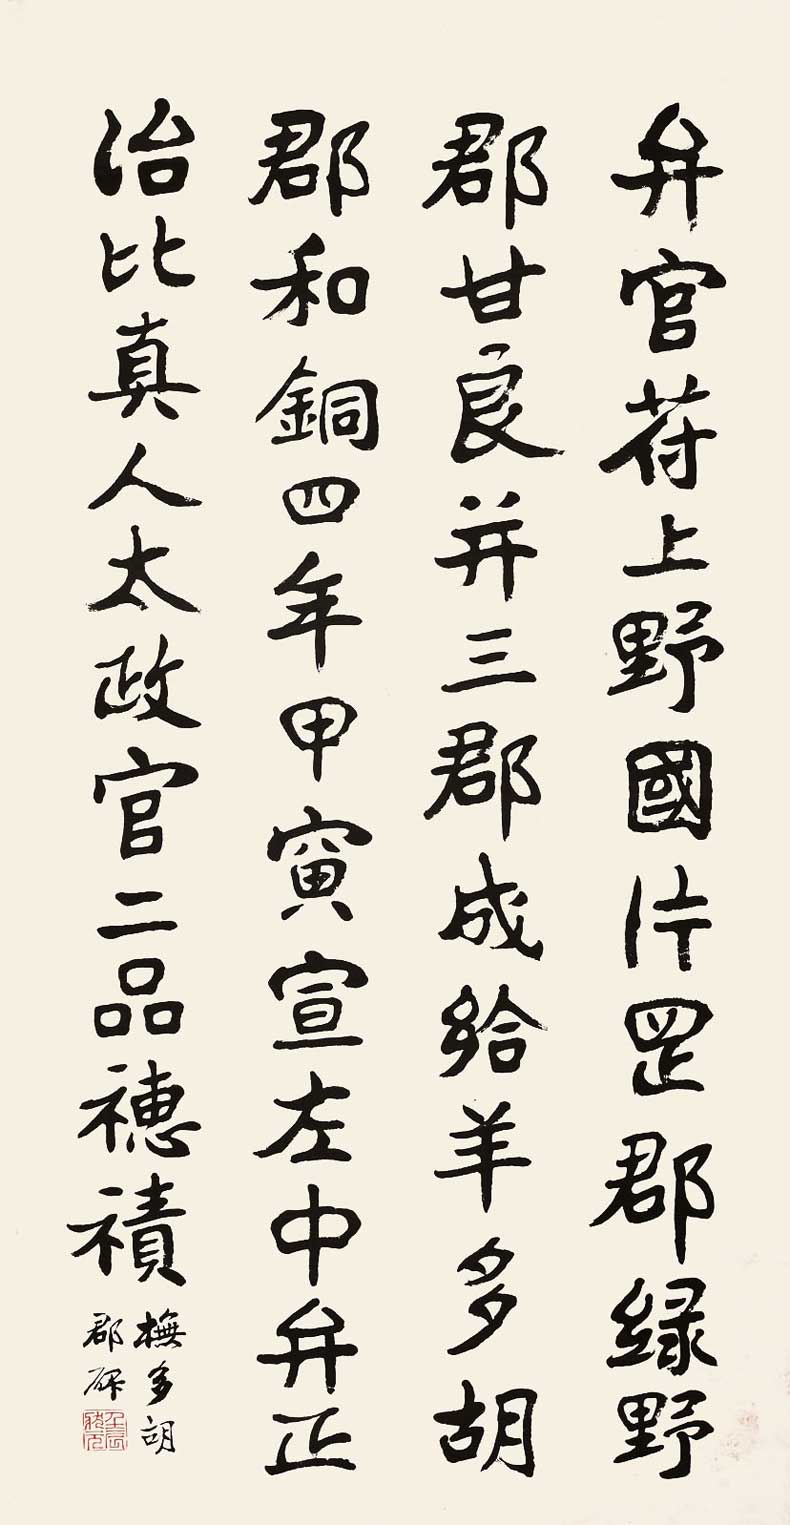 弁官苻上野國片罡郡緑野
郡甘良并三郡成給羊多胡
郡和銅四年甲寅宣左中弁正
治比真人太政官二品穂積
橅多胡
郡碑